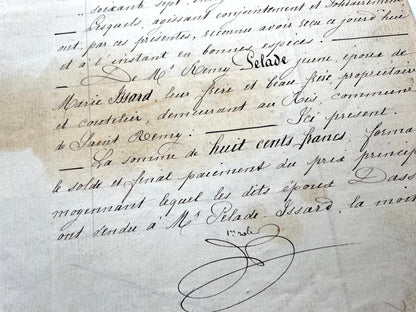 soixante sept,
Lesquels, agissant conjointement et solidairement
ont par ces présentes, reconnu avoir reçu ce jourd'hui
et à l'instant en bonnes espèces.
De Mr. Remy Pelade jeune, époux de
Marie Issard, leur frère et beau frère, propriétaire
et coutelier, demeurant au Rés, commune
de Saint Remy. Ici présent.
La somme de huit cents francs forma
le solde et final paiement du prix princip
moyennant lequel les dits époux Dass
ont vendu à Mr. Pelade-Issard, la moit
1er rôle